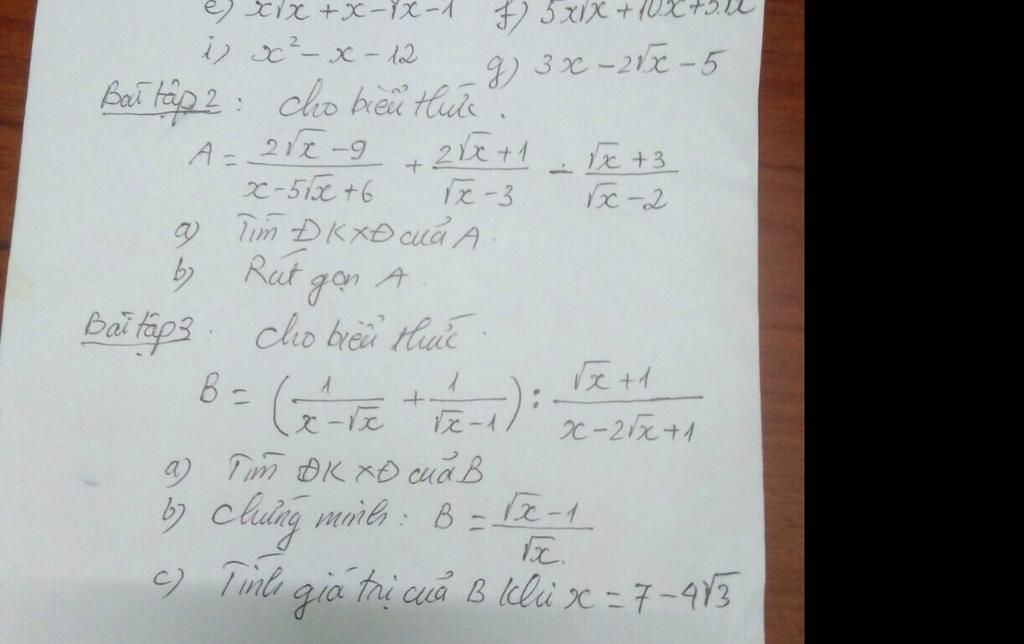 e) x√x + x - √x - 1 f) 5x√x + 10x + 5√x
i) x² - x - 12 g) 3x - 2√x - 5
Bài tập 2: Cho biểu thức.
A = (2√x - 9)/(x - 5√x + 6) + (2√x + 1)/(√x - 3) - (√x + 3)/(√x - 2)
a) Tìm ĐKXĐ của A.
b) Rút gọn A.
Bài tập 3. Cho biểu thức.
B = (1/(x - √x) + 1/(√x - 1)) : (√x + 1)/(x - 2√x + 1)
a) Tìm ĐKXĐ của B
b) Chứng minh: B = (√x - 1)/√x.
c) Tính giá trị của B khi x = 7 - 4√3